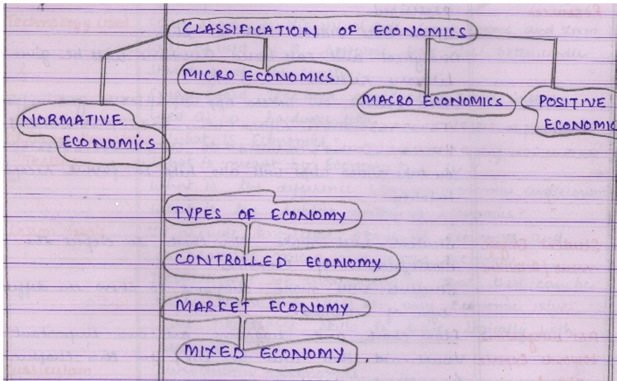 CLASSIFICATION OF ECONOMICS
MICRO ECONOMICS
MACRO ECONOMICS
POSITIVE
ECONOMIC
NORMATIVE
ECONOMICS
TYPES OF ECONOMY
CONTROLLED ECONOMY
MARKET ECONOMY
MIXED ECONOMY.